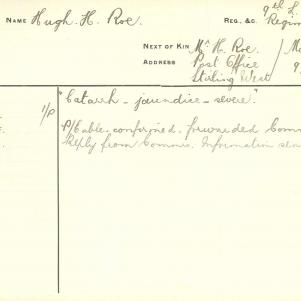 NAME Hugh. H. Roe. REG., &C. 9th L.
NEXT OF KIN Mr H. Roe.
ADDRESS Post Office
Stirling West
"Catarrh - jaundice - severe".
1/P P/Cable. confirmed. forwarded Comm
Reply from Commis. Information sen